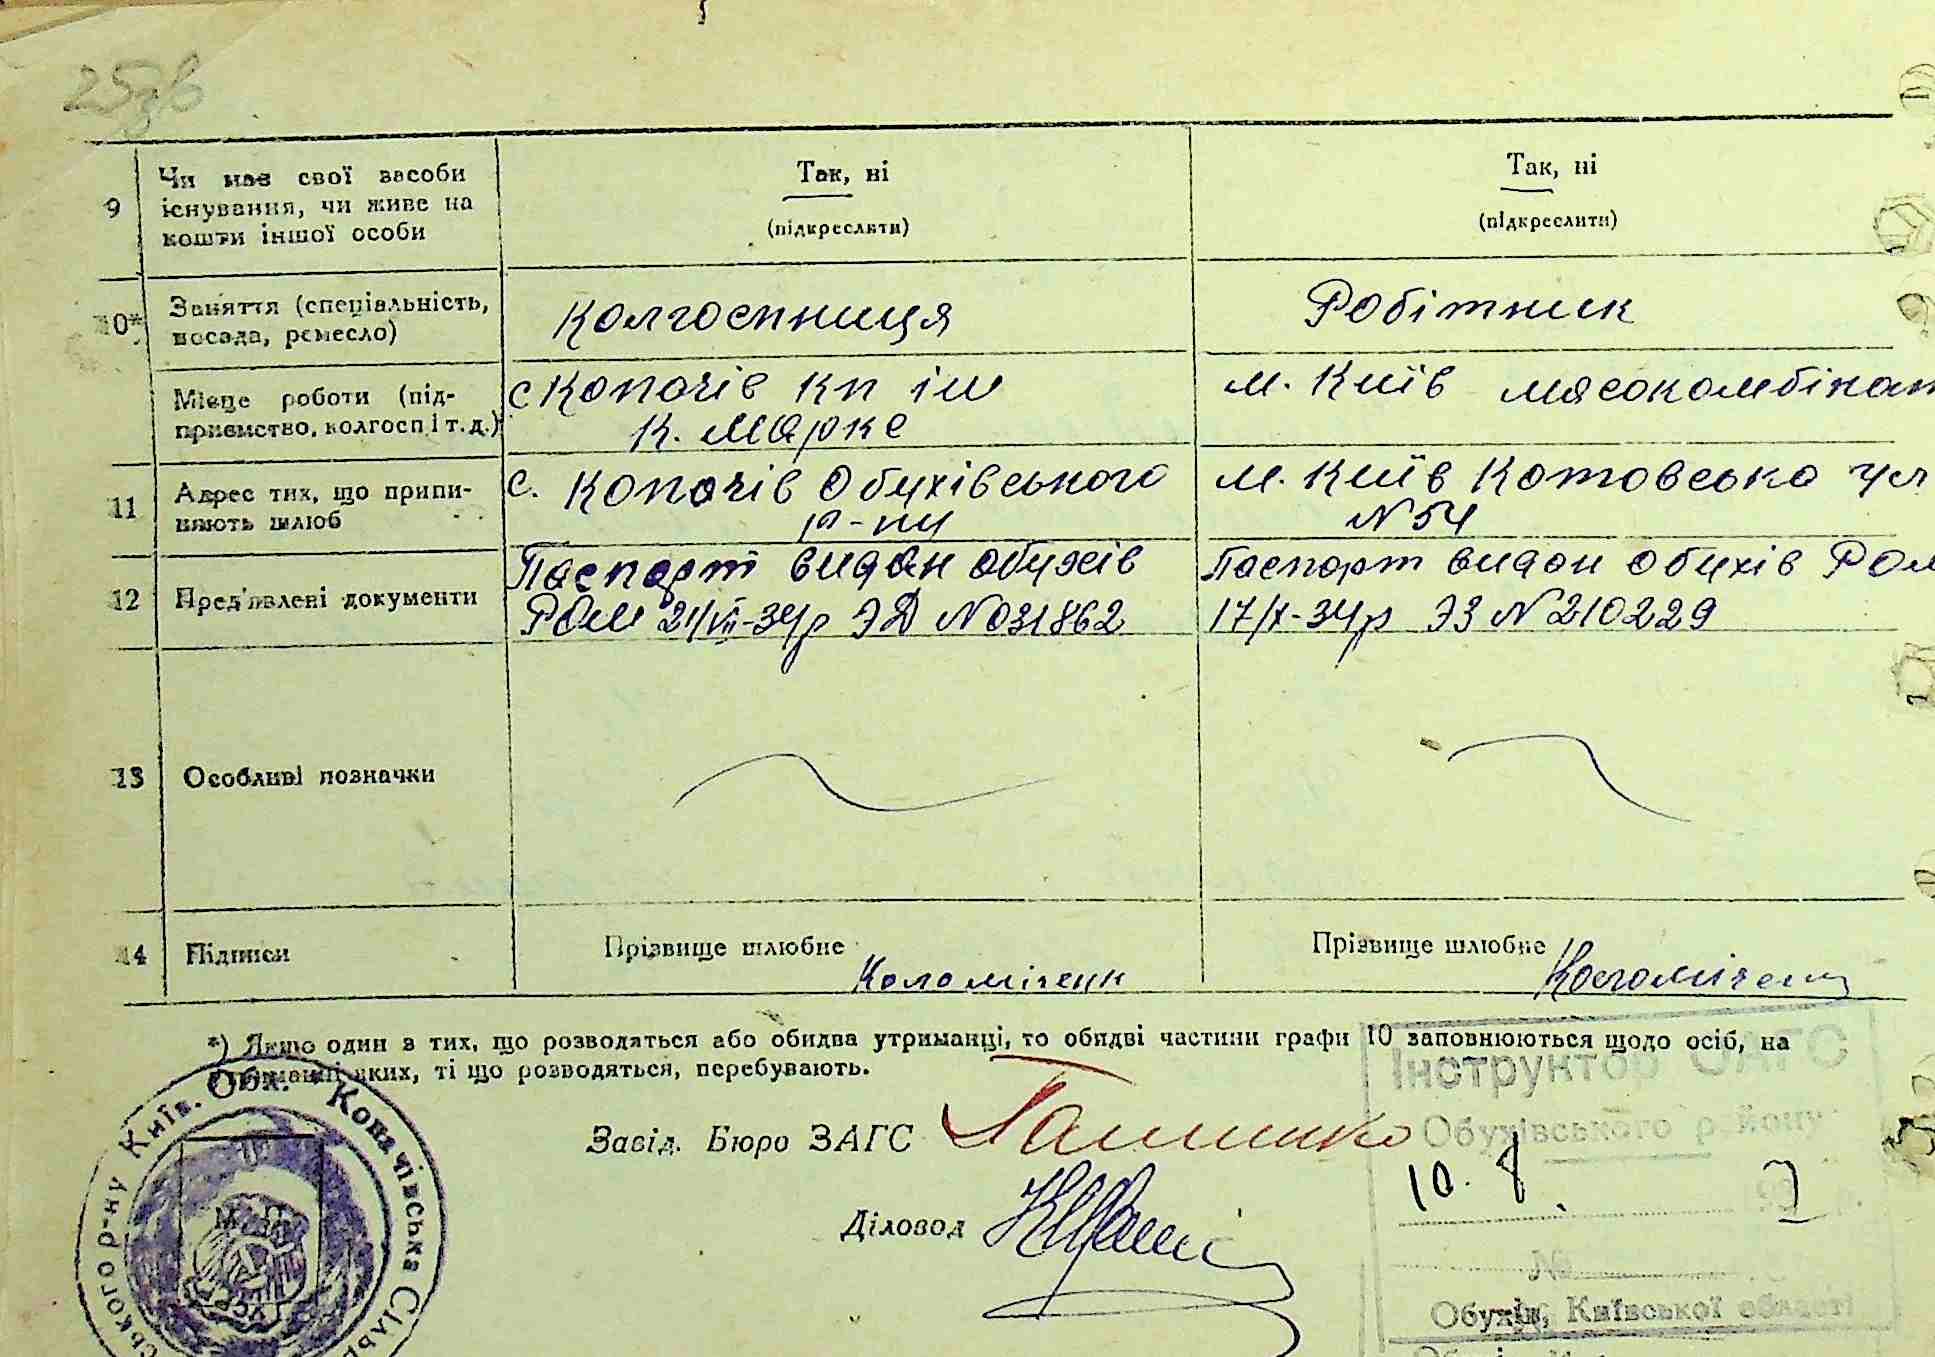 257зв
9 Чи має свої засоби існування, чи живе на кошти іншої особи
Так, ні
(підкреслити)
Так, ні
(підкреслити)
10* Заняття (спеціальність, посада, ремесло)
Колгоспниця
Робітник
Місце роботи (підприємство, колгосп і т. д.)
с Копачів кп ім
К. Маркс
м. Київ мясокомбінат
11 Адрес тих, що припиняють шлюб
с. Копачів Обухівського
р-ну
м. Київ Котовська ул
№ 54
12 Пред'явлені документи
Паспорт видан Обухів
РОМ 21/VII-34р ЭД №031862
Паспорт видан Обухів РОМ
17/X-34р ЭЗ №210229
13 Особливі позначки
14 Підписи
Прізвище шлюбне
Коломіченк
Прізвище шлюбне
Коломіченко
*) Якщо один з тих, що розводяться або обидва утриманці, то обидві частини графи 10 заповнюються щодо осіб, на
утриманні яких, ті що розводяться, перебувають.
Інструктор ЗАГС
Обухівського району
10. 8
№
Обухів, Київської області
Завід. Бюро ЗАГС
Діловод
Київ. Обл. * Копачівська Сільр
ського р-ну
УСРР